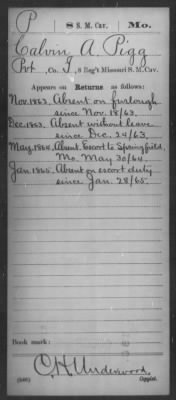 P 8 S. M. Cav. Mo.
Calvin A. Pigg
Pvt, Co. I, 8 Reg't Missouri S. M. Cav.
Appears on Returns as follows:
Nov. 1863. Absent on furlough
since Nov. 18/63.
Dec. 1863. Absent without leave
since Dec. 24/63.
May, 1864. Absent. Escort to Springfield,
Mo. May 30/64.
Jan. 1865. Absent on escort duty
since Jan. 28/65.
Book mark:
C. H. Underwood.
(546) Copyist.